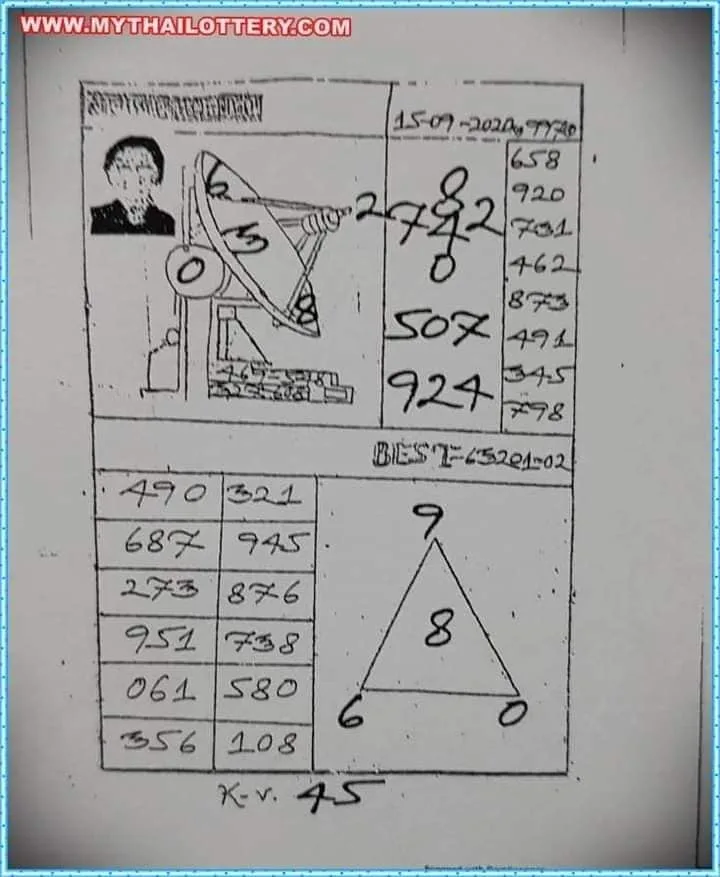 WWW.MYTHAILOTTERY.COM
15-09-2020
658
920
731
462
873
491
345
798
6
3
0
8
2
8
742
0
507
924
BEST=
490 321
687 945
273 876
951 738
061 580
356 108
9
8
6 0
K-v. 45